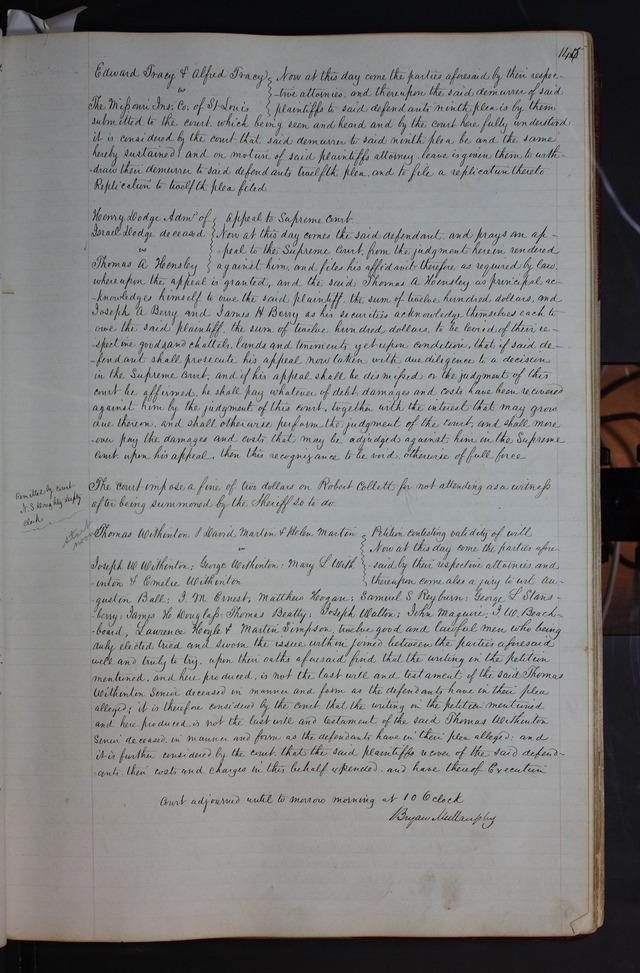 145
Edward Tracy & Alfred Tracy } Now at this day come the parties aforesaid by their respec-
vs -tive attornies, and thereupon the said demurrer of said
The Missouri Ins: Co: of St Louis plaintiffs to said defendants ninth plea is by them
submitted to the court, which being seen and heard and by the court here fully understood
it is considered by the court that said demurrer to said ninth plea be and the same
hereby sustained, and on motion of said plaintiffs attorney, leave is given them to with-
-draw their demurrer to said defendants twelfth plea, and to file a replication thereto
Replication to twelfth plea filed
Henry Dodge Admr of } Appeal to Supreme Court.
Israel Dodge deceased Now at this day comes the said defendant, and prays an ap-
vs -peal to the Supreme Court, from the judgment herein rendered
Thomas A Hensley against him, and files his affidavit therefore as required by law,
whereupon the appeal is granted, and the said Thomas A Hensley as principal ac-
-knowledges himself to owe the said plaintiff, the sum of twelve hundred dollars, and
Joseph A Berry and James H Berry as his securities acknowledge themselves each to
owe the said plaintiff, the sum of twelve hundred dollars, to be levied of their re-
-spective goods and chattels, lands and tenements, yet upon condition, that if said de-
-fendant shall prosecute his appeal now taken with due diligence to a decision
in the Supreme Court, and if his appeal shall be dismissed or the judgment of this
court be affirmed, he shall pay whatever of debt, damages and costs have been recovered
against him by the judgment of this court, together with the interest that may grow
due thereon, and shall otherwise perform the judgment of the court, and shall more-
-over pay the damages and costs that may be adjudged against him in the Supreme
Court upon his appeal, then this recognizance to be void, otherwise of full force
The court impose a fine of two dollars on Robert Collett for not attending as a witness
after being summoned by the Sheriff so to do.
Remitted by court
clerk
Thomas Withinton & David Martin & Helen Martin } Petition contesting validity of will
vs Now at this day come the parties afore-
Joseph W Withinton; George Withinton; Mary L With -said by their respective attornies and
-inton & Emelie Withinton thereupon come also a jury to wit: Au-
-gustin Ball; J. M. Ernest; Matthew Hogan; Samuel S Reyburn; George L Stans-
-berry; James H Douglass; Thomas Beatty; Joseph Walton; John Maguire; F. W. Beach-
-board; Lawrence Hoyle & Martin Simpson, twelve good and lawful men who being
duly elected tried and sworn the issue within joined between the parties aforesaid
well and truly to try, upon their oaths aforesaid find that the writing in the petition
mentioned, and here produced, is not the last will and testament of the said Thomas
Withinton Senior deceased in manner and form as the defendants have in their plea
alleged; it is therefore considered by the court that the writing in the petition mentioned
and here produced, is not the last will and testament of the said Thomas Withinton
Senior deceased, in manner and form as the defendants have in their plea alleged; and
it is further considered by the court that the said plaintiffs recover of the said defend-
-ants their costs and charges in this behalf expended, and have thereof Execution
Court adjourned until to morrow morning at 10 O'clock
Bryan Mullanphy